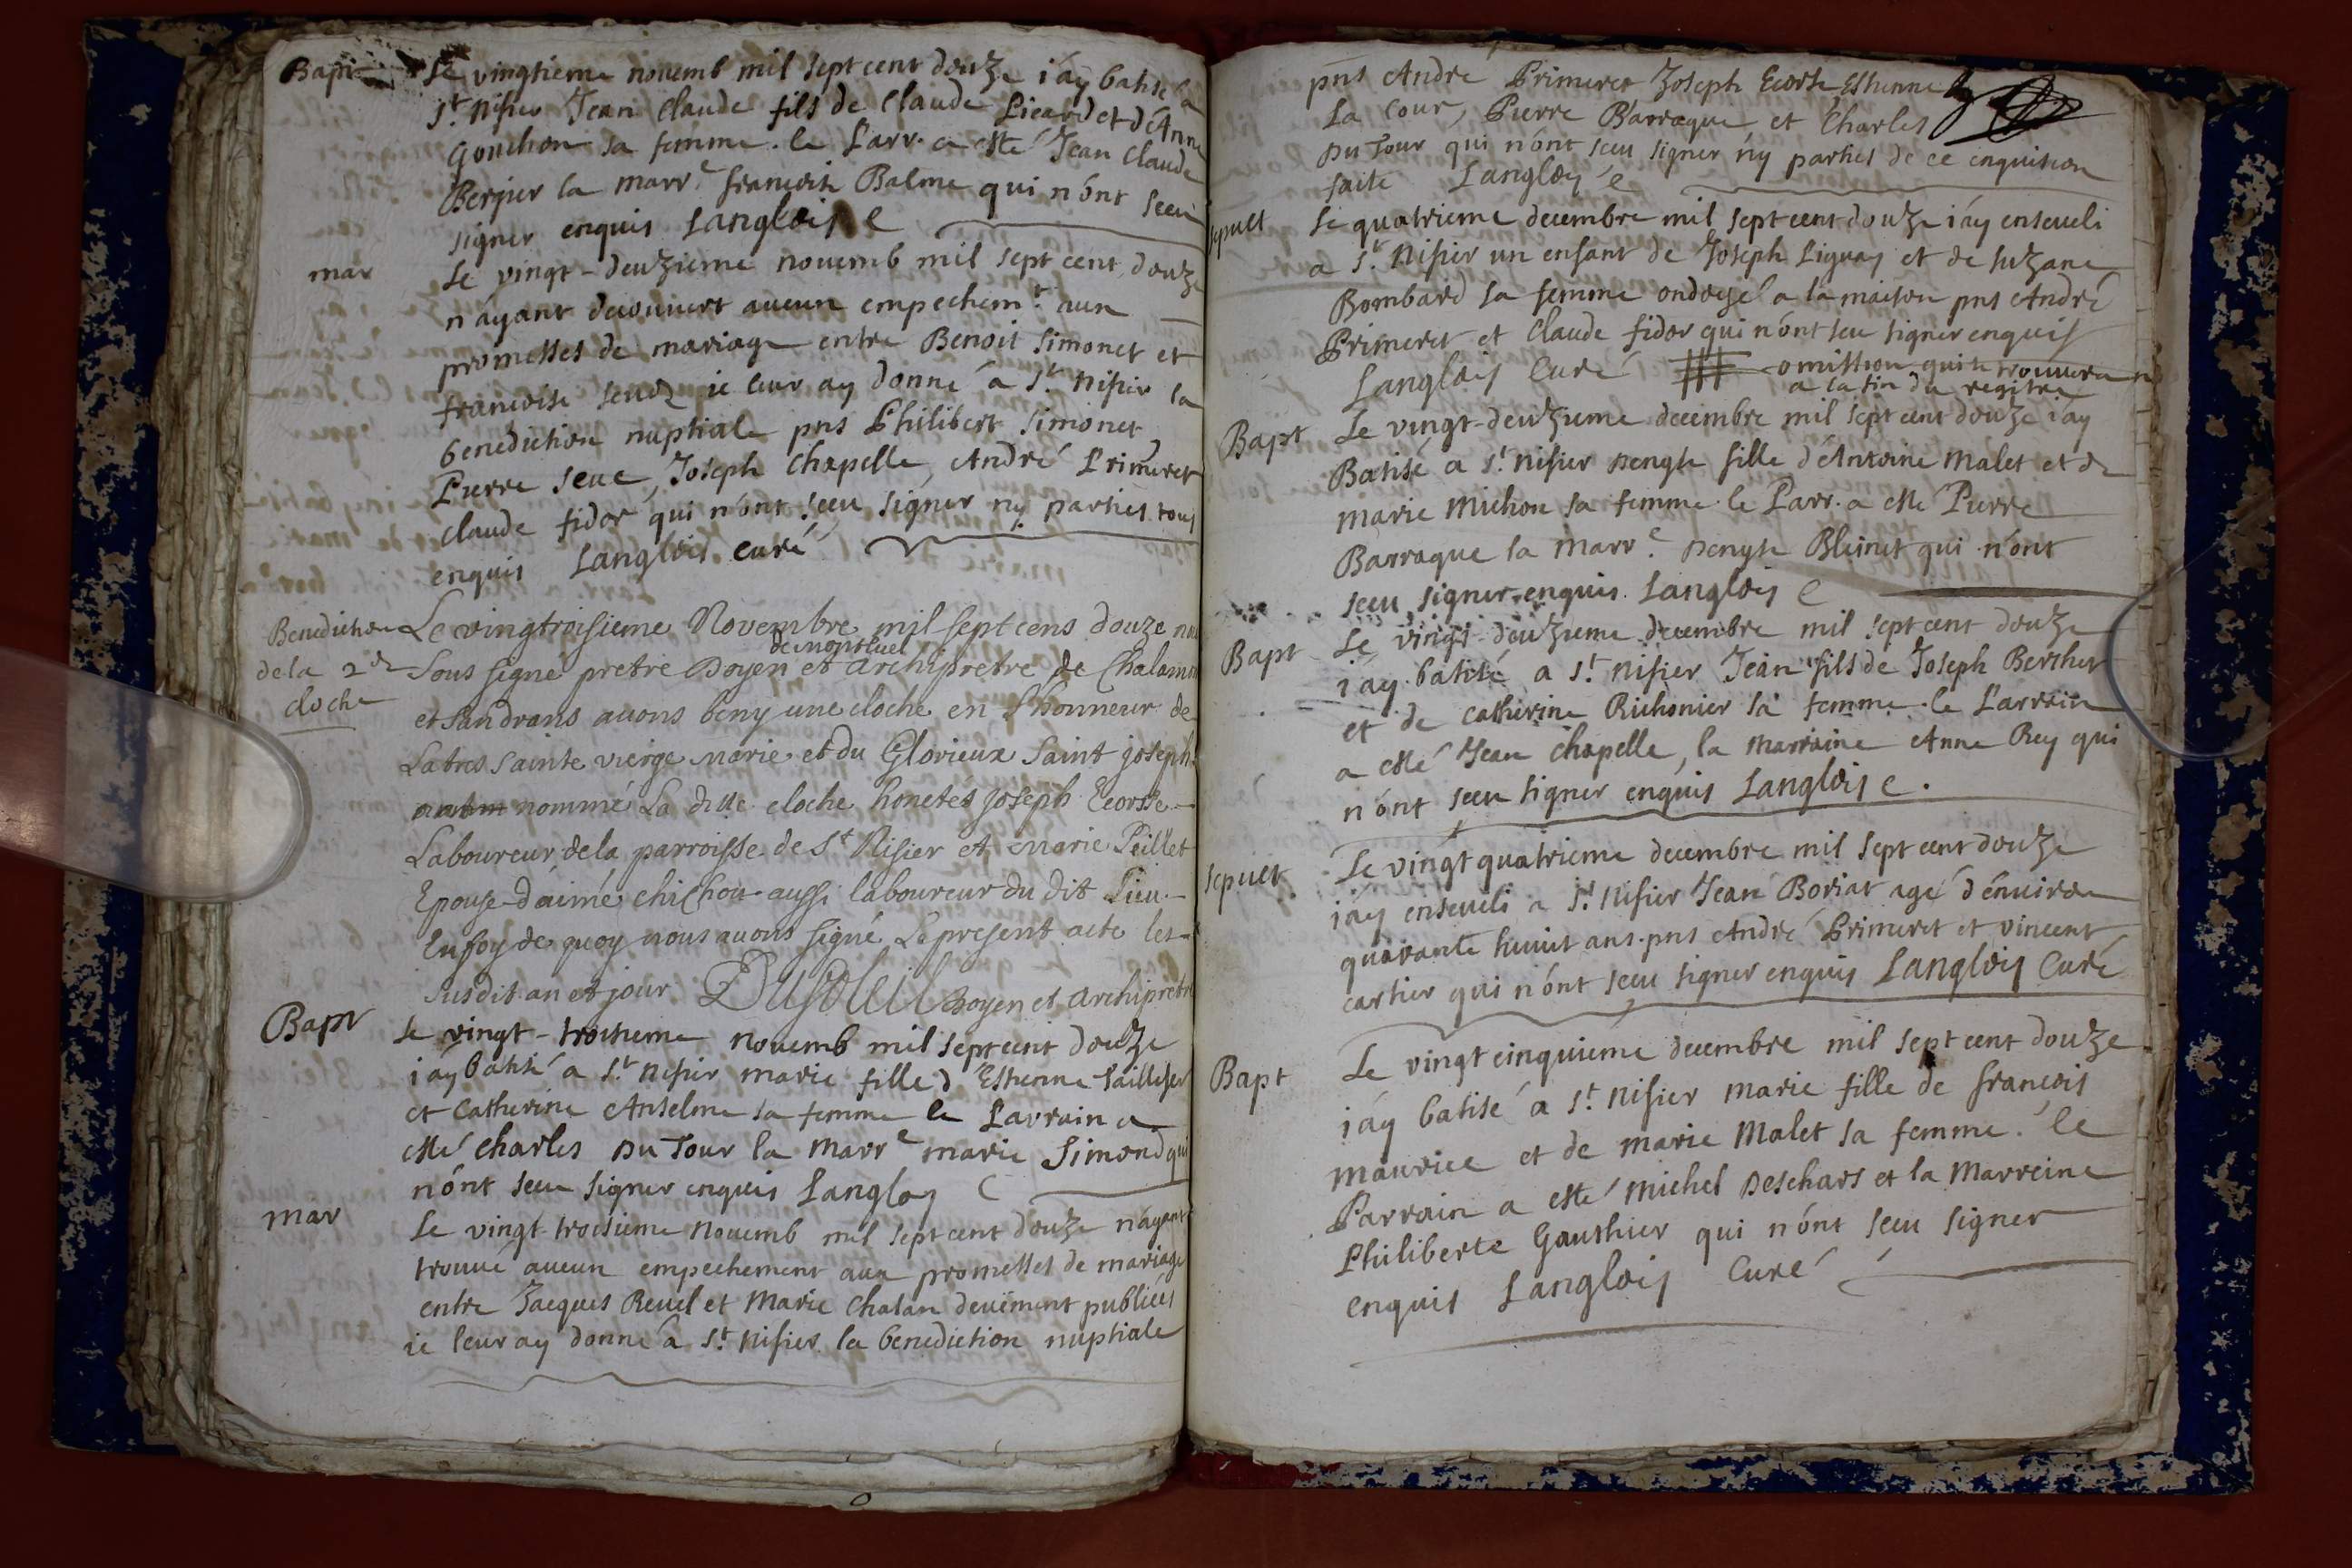 Bapt Le vingtieme nouemb mil sept cent douze i'ay batisé a
St. Nisier Jean Claude fils de Claude Picard et d'Anne
Gonchon sa femme. le Parr. a esté Jean Claude
Berjier la marr.e francoise Balme qui n'ont sceu
signer enquis Langlois C
mar Le vingt-deuzieme nouemb mil sept cent douze
n'ayant decouuert aucun empechem.t aux
promesses de mariage entre Benoit Simonet et
francoise je leur ay donné a St. Nisier la
benediction nuptiale pns Philibert Simonet
Pierre Seue, Joseph Chapelle, André Primeret
Claude fidor qui n'ont sceu signer ny parties tous
enquis Langlois curé
Benediction Le vingtroisieme Novembre mil sept cens douze
de Montluel
de la 2de Sous signé pretre Doyen et archipretre de
cloche et Sandrans auons beny une cloche en l'honneur de
La tres Sainte vierge Marie et du Glorieux Saint joseph
nommé La ditte cloche honetes Joseph Ecorse
Laboureur de la parroisse de St Nisier et Marie Peillet
Epouse d'aimé chichou aussi laboureur du dit Lieu.
En foy de quoy nous auons signé Le present acte les
susdit an et jour. Doyen et Archipretre
Bapt Le vingt-troisieme nouemb mil sept cent douze
i'ay batisé a St. Nisier marie fille d'Esthienne
et Catherine Anselme sa femme le Parrain a
esté Charles Du Tour la Marr.e marie Simond qui
n'ont sceu signer enquis Langloy C
mar Le vingt troisieme Nouemb mil sept cent douze n'ayant
trouué aucun empechement aux promesses de mariage
entre Jacques Reuel et Marie Chalan deüement publiées
ie leur ay donné a St. Nisier la benediction nuptiale
pns André Primeret Joseph Ecorse Esthienne
La Cour, Pierre Barraque et Charles
Du Tour qui n'ont sceu signer ny parties de ce enquision
faite Langloy C
sepult Le quatrieme decembre mil sept cent douze i'ay enseueli
a St. Nisier un enfant de Joseph Liguay et de Suzane
Bombard sa femme ondoyé a la maison pns André
Primeret et Claude fidor qui n'ont sceu signer enquis
Langlois Curé omission qui se trouuera
a la fin du regitre
Bapt Le vingt-deuzieme decembre mil sept cent douze i'ay
Batisé a St. Nisier Denyse fille d'Antoine Malet et de
marie Michon sa femme. le Parr. a esté Pierre
Barraque la Marr.e Denyse Bleinet qui n'ont
sceu signer enquis. Langlois C
Bapt Le vingt-deuzieme decembre mil sept cent douze
i'ay batisé a St. Nisier Jean fils de Joseph Berthet
et de Catherine Richonier sa femme. le Parrain
a esté Jean Chapelle, la Marraine Anne Rey qui
n'ont sceu signer enquis Langlois C.
sepult Le vingt quatrieme decembre mil sept cent douze
j'ay enseueli a St. Nisier Jean Boriat agé d'enuiron
quarante huit ans. pns André Primeret et vincent
cartier qui n'ont sceu signer enquis Langlois Curé
Bapt Le vingt cinquieme decembre mil sept cent douze
j'ay batisé a St. Nisier marie fille de françois
maurice et de marie Malet sa femme. le
Parrain a esté Michel Deschars et la Marreine
Philiberte Gauthier qui n'ont sceu signer
enquis Langlois Curé